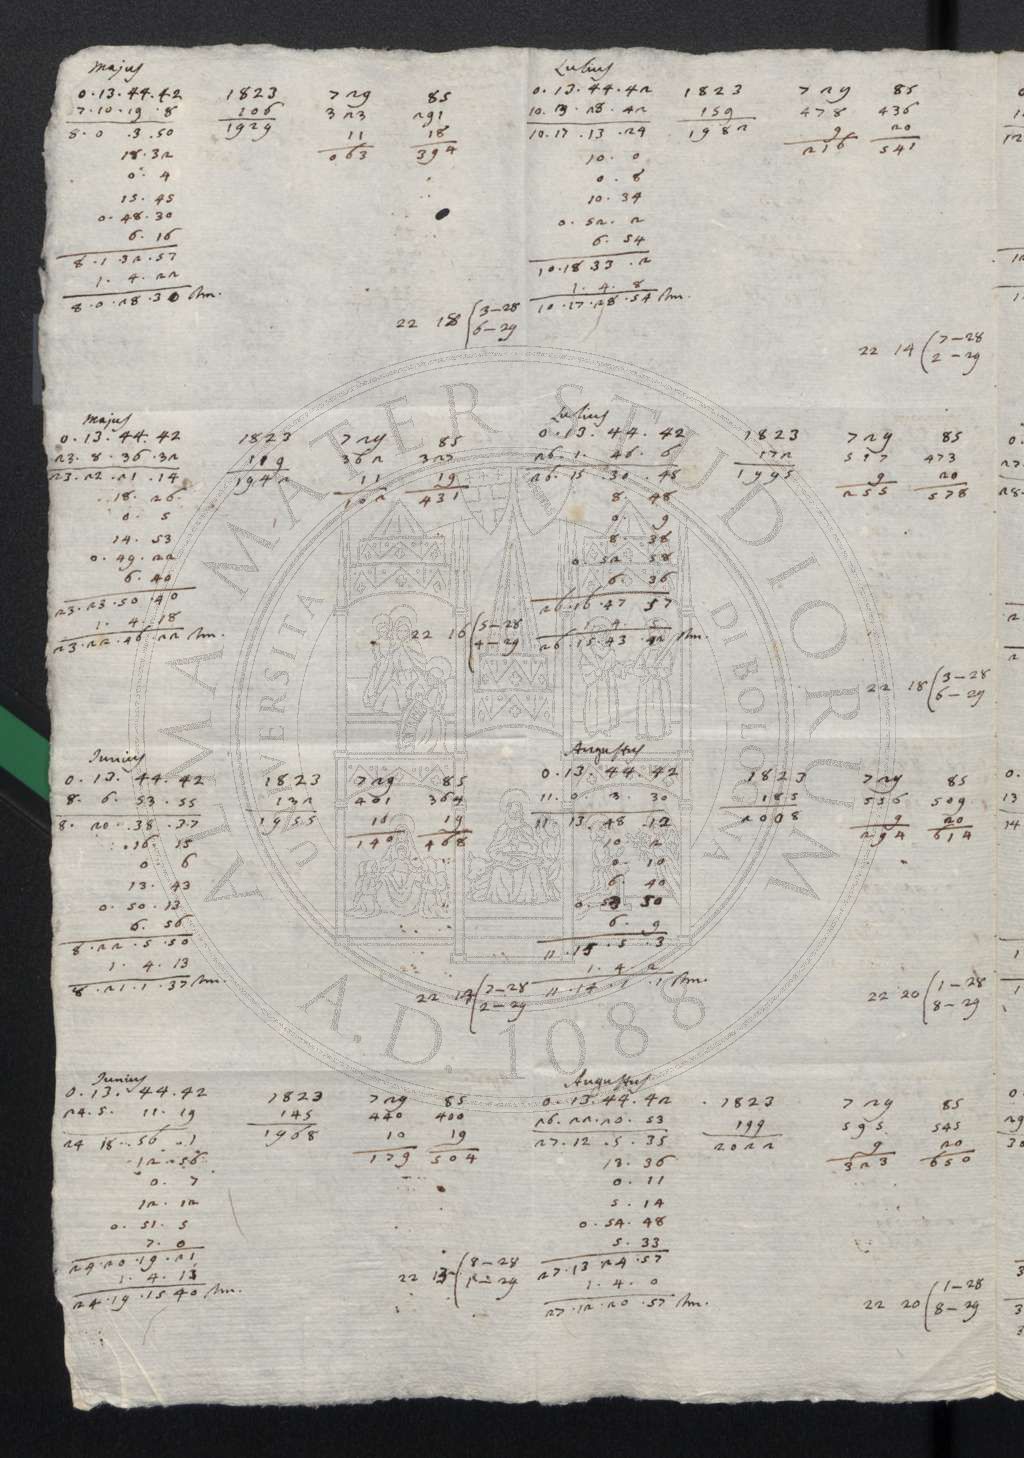 Majus
0.13.44.42 1823 729 85
7.10.19.8 106 323 291
8.0.3.50 1929 11 18
18.32 063 394
0.4
15.45
0.48.30
6.16
8.1.32.57
1.4.22
8.0.28.30
22 18 3-28
6-29
Majus
0.13.44.42 1823 729 85
23.8.36.32 119 362 327
23.22.21.14 1942 11 19
18.26 102 431
0.5
14.53
0.49.22
6.40
23.23.50.40
1.4.18
23.22.46.22
22 16 5-28
4-29
Junius
0.13.44.42 1823 729 85
8.6.53.55 132 401 364
8.20.38.37 1955 10 19
16.15 140 468
0.6
13.43
0.50.13
6.56
8.22.5.50
1.4.13
8.21.1.37
22 14 7-28
2-29
Junius
0.13.44.42 1823 729 85
24.5.11.19 145 440 400
24.18.56.1 1968 10 19
12.56 179 504
0.7
12.12
0.51.5
7.0
24.20.19.21
1.4.13
24.19.15.40
22 8-28
Julius
0.13.44.42 1823 729 85
10.3.28.42 159 478 436
10.17.13.24 1982 9 20
10.0 216 541
0.8
10.34
0.52.2
6.54
10.18.33.2
1.4.8
10.17.28.54
22 14 7-28
2-29
Julius
0.13.44.42 1823 729 85
26.1.46.6 172 517 473
26.15.30.48 1995 9 20
8.48 255 578
0.9
8.38
0.52.58
6.36
26.16.47.57
1.4.5
26.15.43.42
22 18 3-28
6-29
Augustus
0.13.44.42 1823 729 85
11.0.3.30 185 556 509
11.13.48.12 2008 9 20
10.2 294 614
0.10
6.40
0.53.50
6.9
11.15.5.3
1.4.2
11.14.1.1
22 20 1-28
8-29
Augustus
0.13.44.42 1823 729 85
26.22.20.53 199 595 545
27.12.5.35 2022 9 20
13.36 323 650
0.11
5.14
0.54.48
5.33
27.13.24.57
1.4.0
27.12.20.57
22 20 1-28
8-29
ALMA MATER STUDIORUM
UNIVERSITA DI BOLOGNA
A.D. 1088